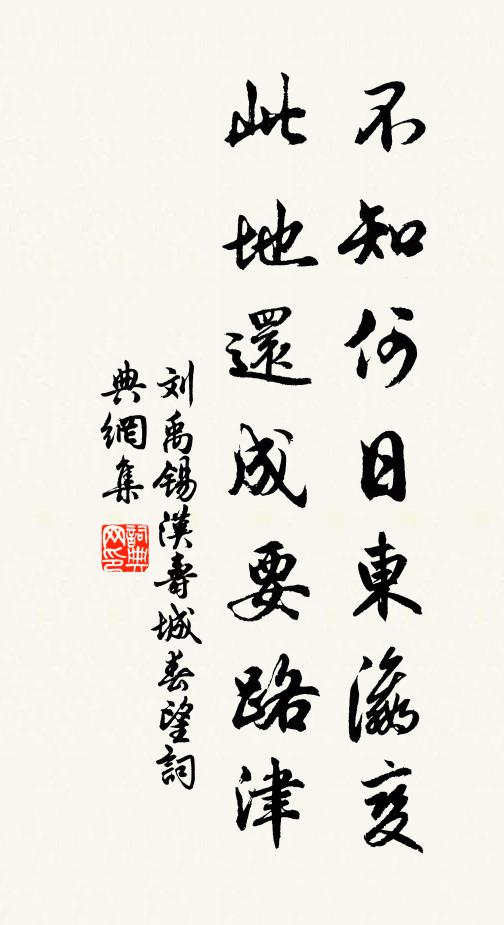 不知何日東瀛变
此地還成要路津
刘禹锡漢壽城春望詞
典網集
詞典
网印